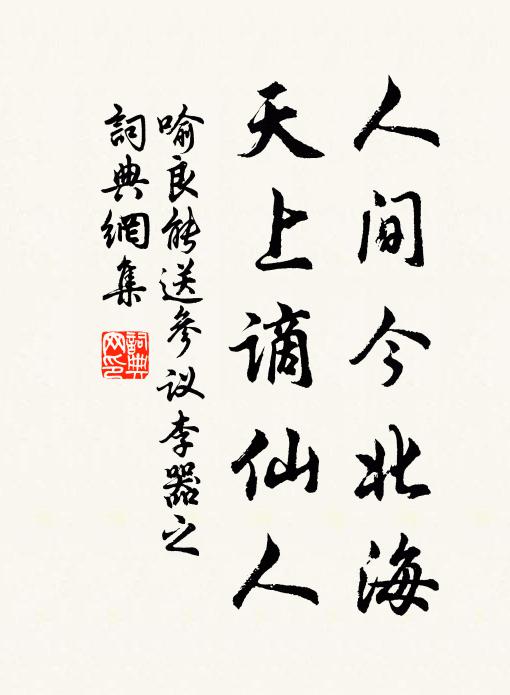 人间今北海
天上谪仙人
喻良能送參议李器之
詞典網集
詞典網印